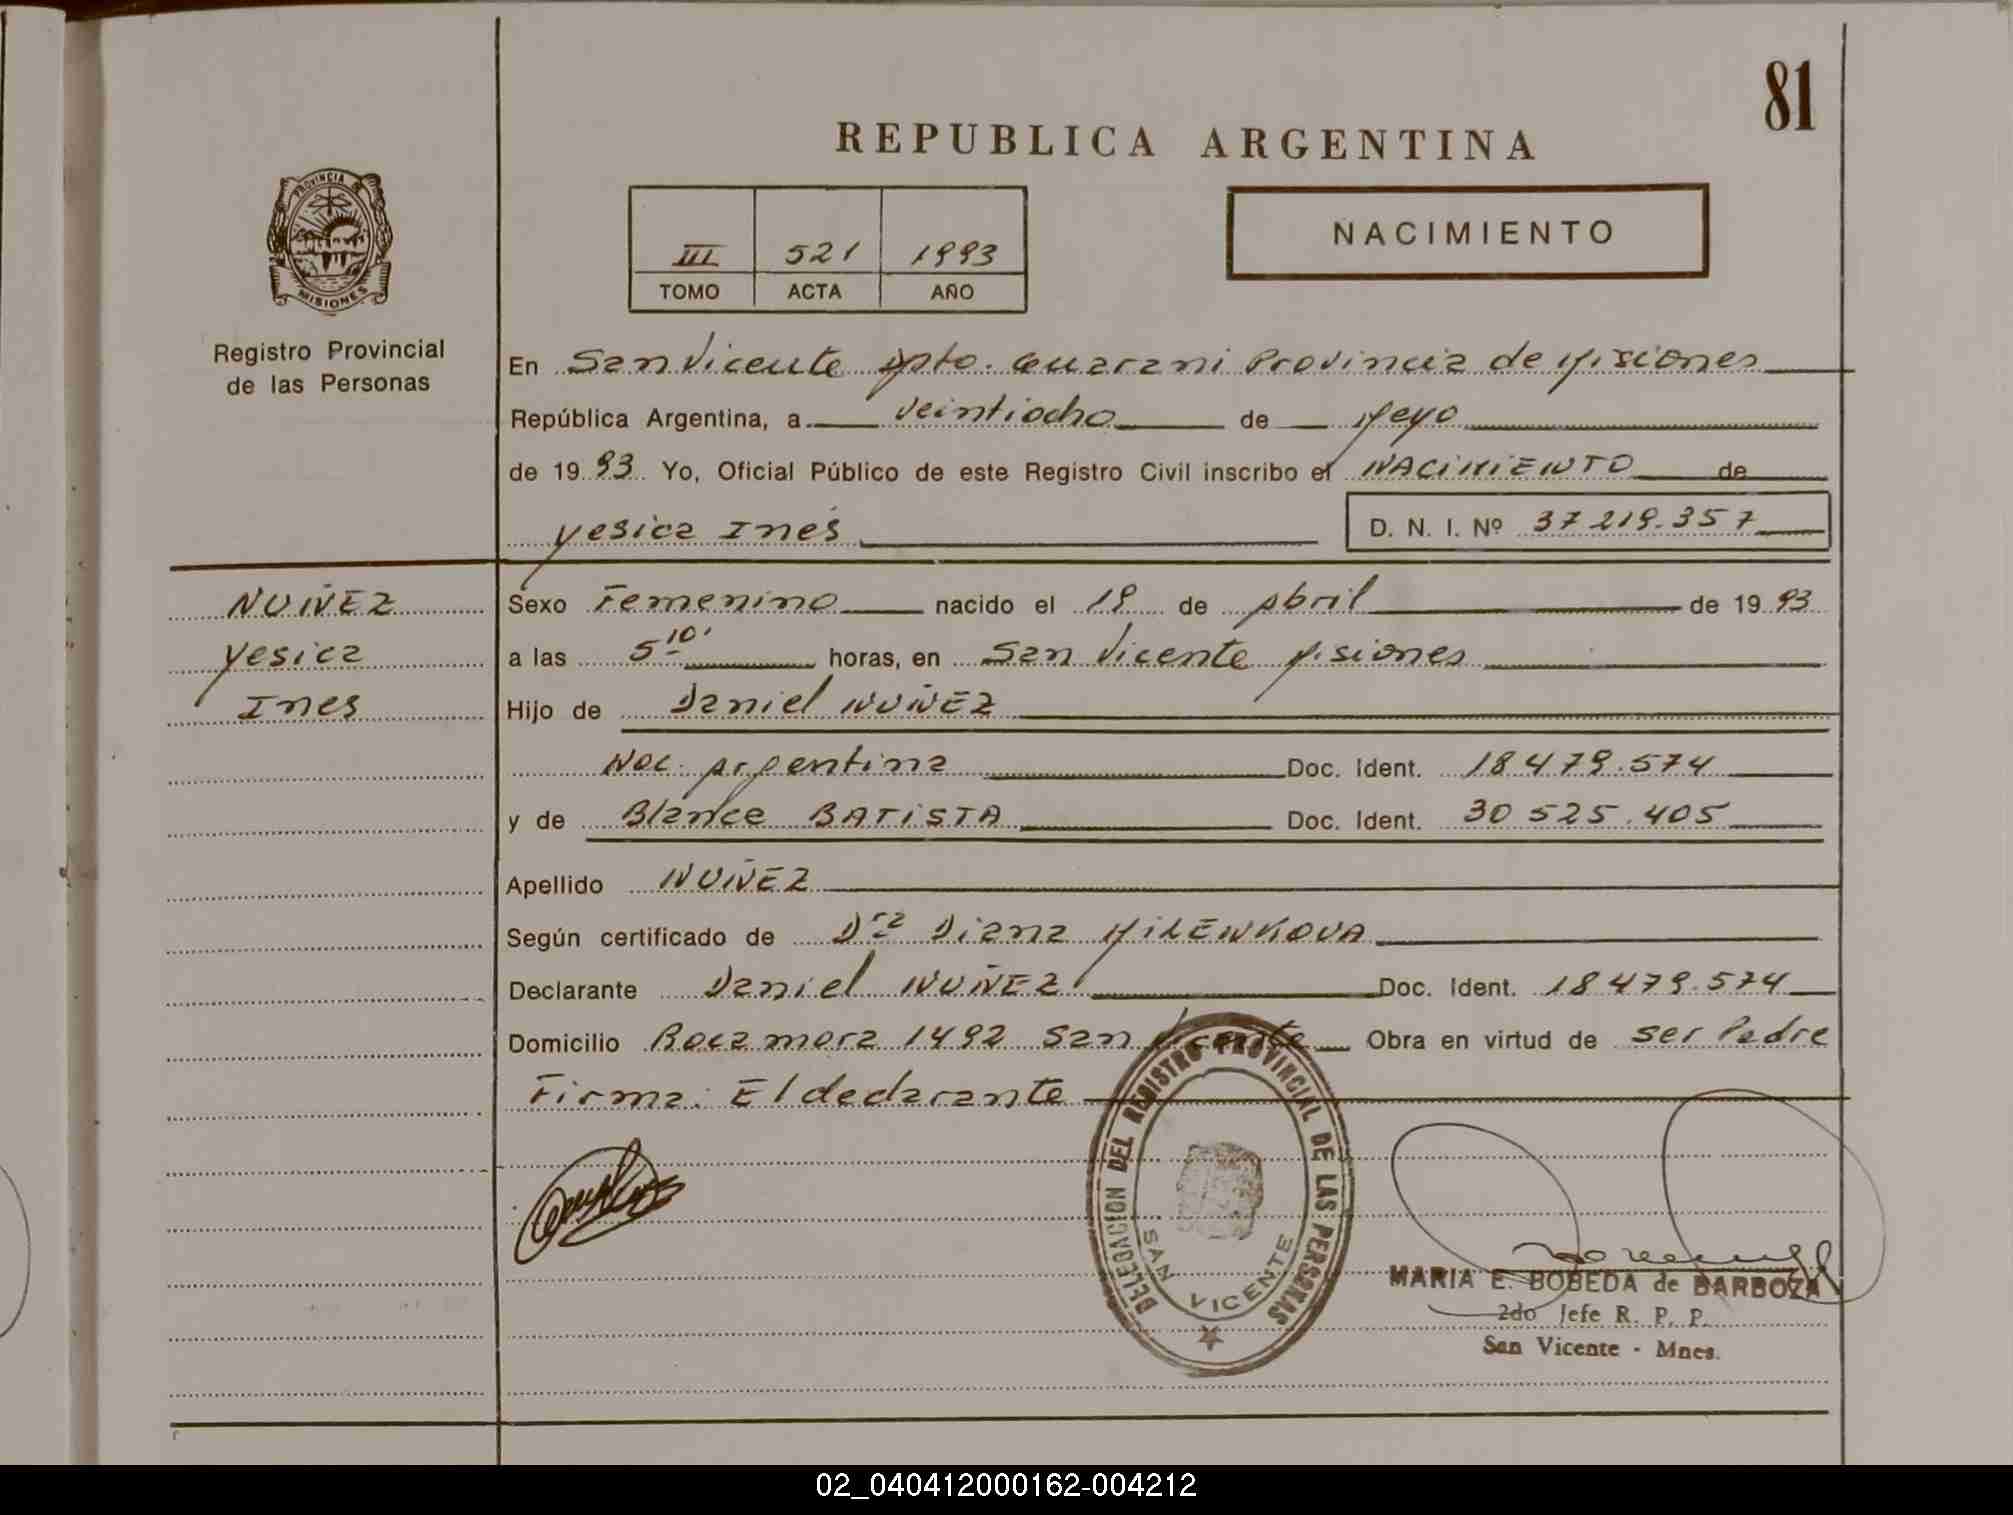 81
REPUBLICA ARGENTINA
PROVINCIA DE
MISIONES
Registro Provincial
de las Personas
III 521 1993
TOMO ACTA AÑO
NACIMIENTO
En San Vicente Dpto. Guarani Provincia de Misiones
República Argentina, a veintiocho de Mayo
de 1993. Yo, Oficial Público de este Registro Civil inscribo el NACIMIENTO de
Yesica Inés D. N. I. Nº 37.219.357
NUÑEZ
Yesica
Ines
Sexo Femenino nacido el 19 de Abril de 1993
a las 5 10' horas, en San Vicente Misiones
Hijo de Daniel NUÑEZ
Nac. Argentina Doc. Ident. 18.479.574
y de Blanca BATISTA Doc. Ident. 30.525.405
Apellido NUÑEZ
Según certificado de Dra Diana MILENKOVA
Declarante Daniel NUÑEZ Doc. Ident. 18.479.574
Domicilio Rocamora 1492 San Vicente Obra en virtud de ser Padre
Firma: El declarante
DELEGACION DEL REGISTRO PROVINCIAL DE LAS PERSONAS
SAN VICENTE
MARIA E. BOBEDA de BARBOZA
2do Jefe R. P. P.
San Vicente - Mnes.
02_040412000162-004212